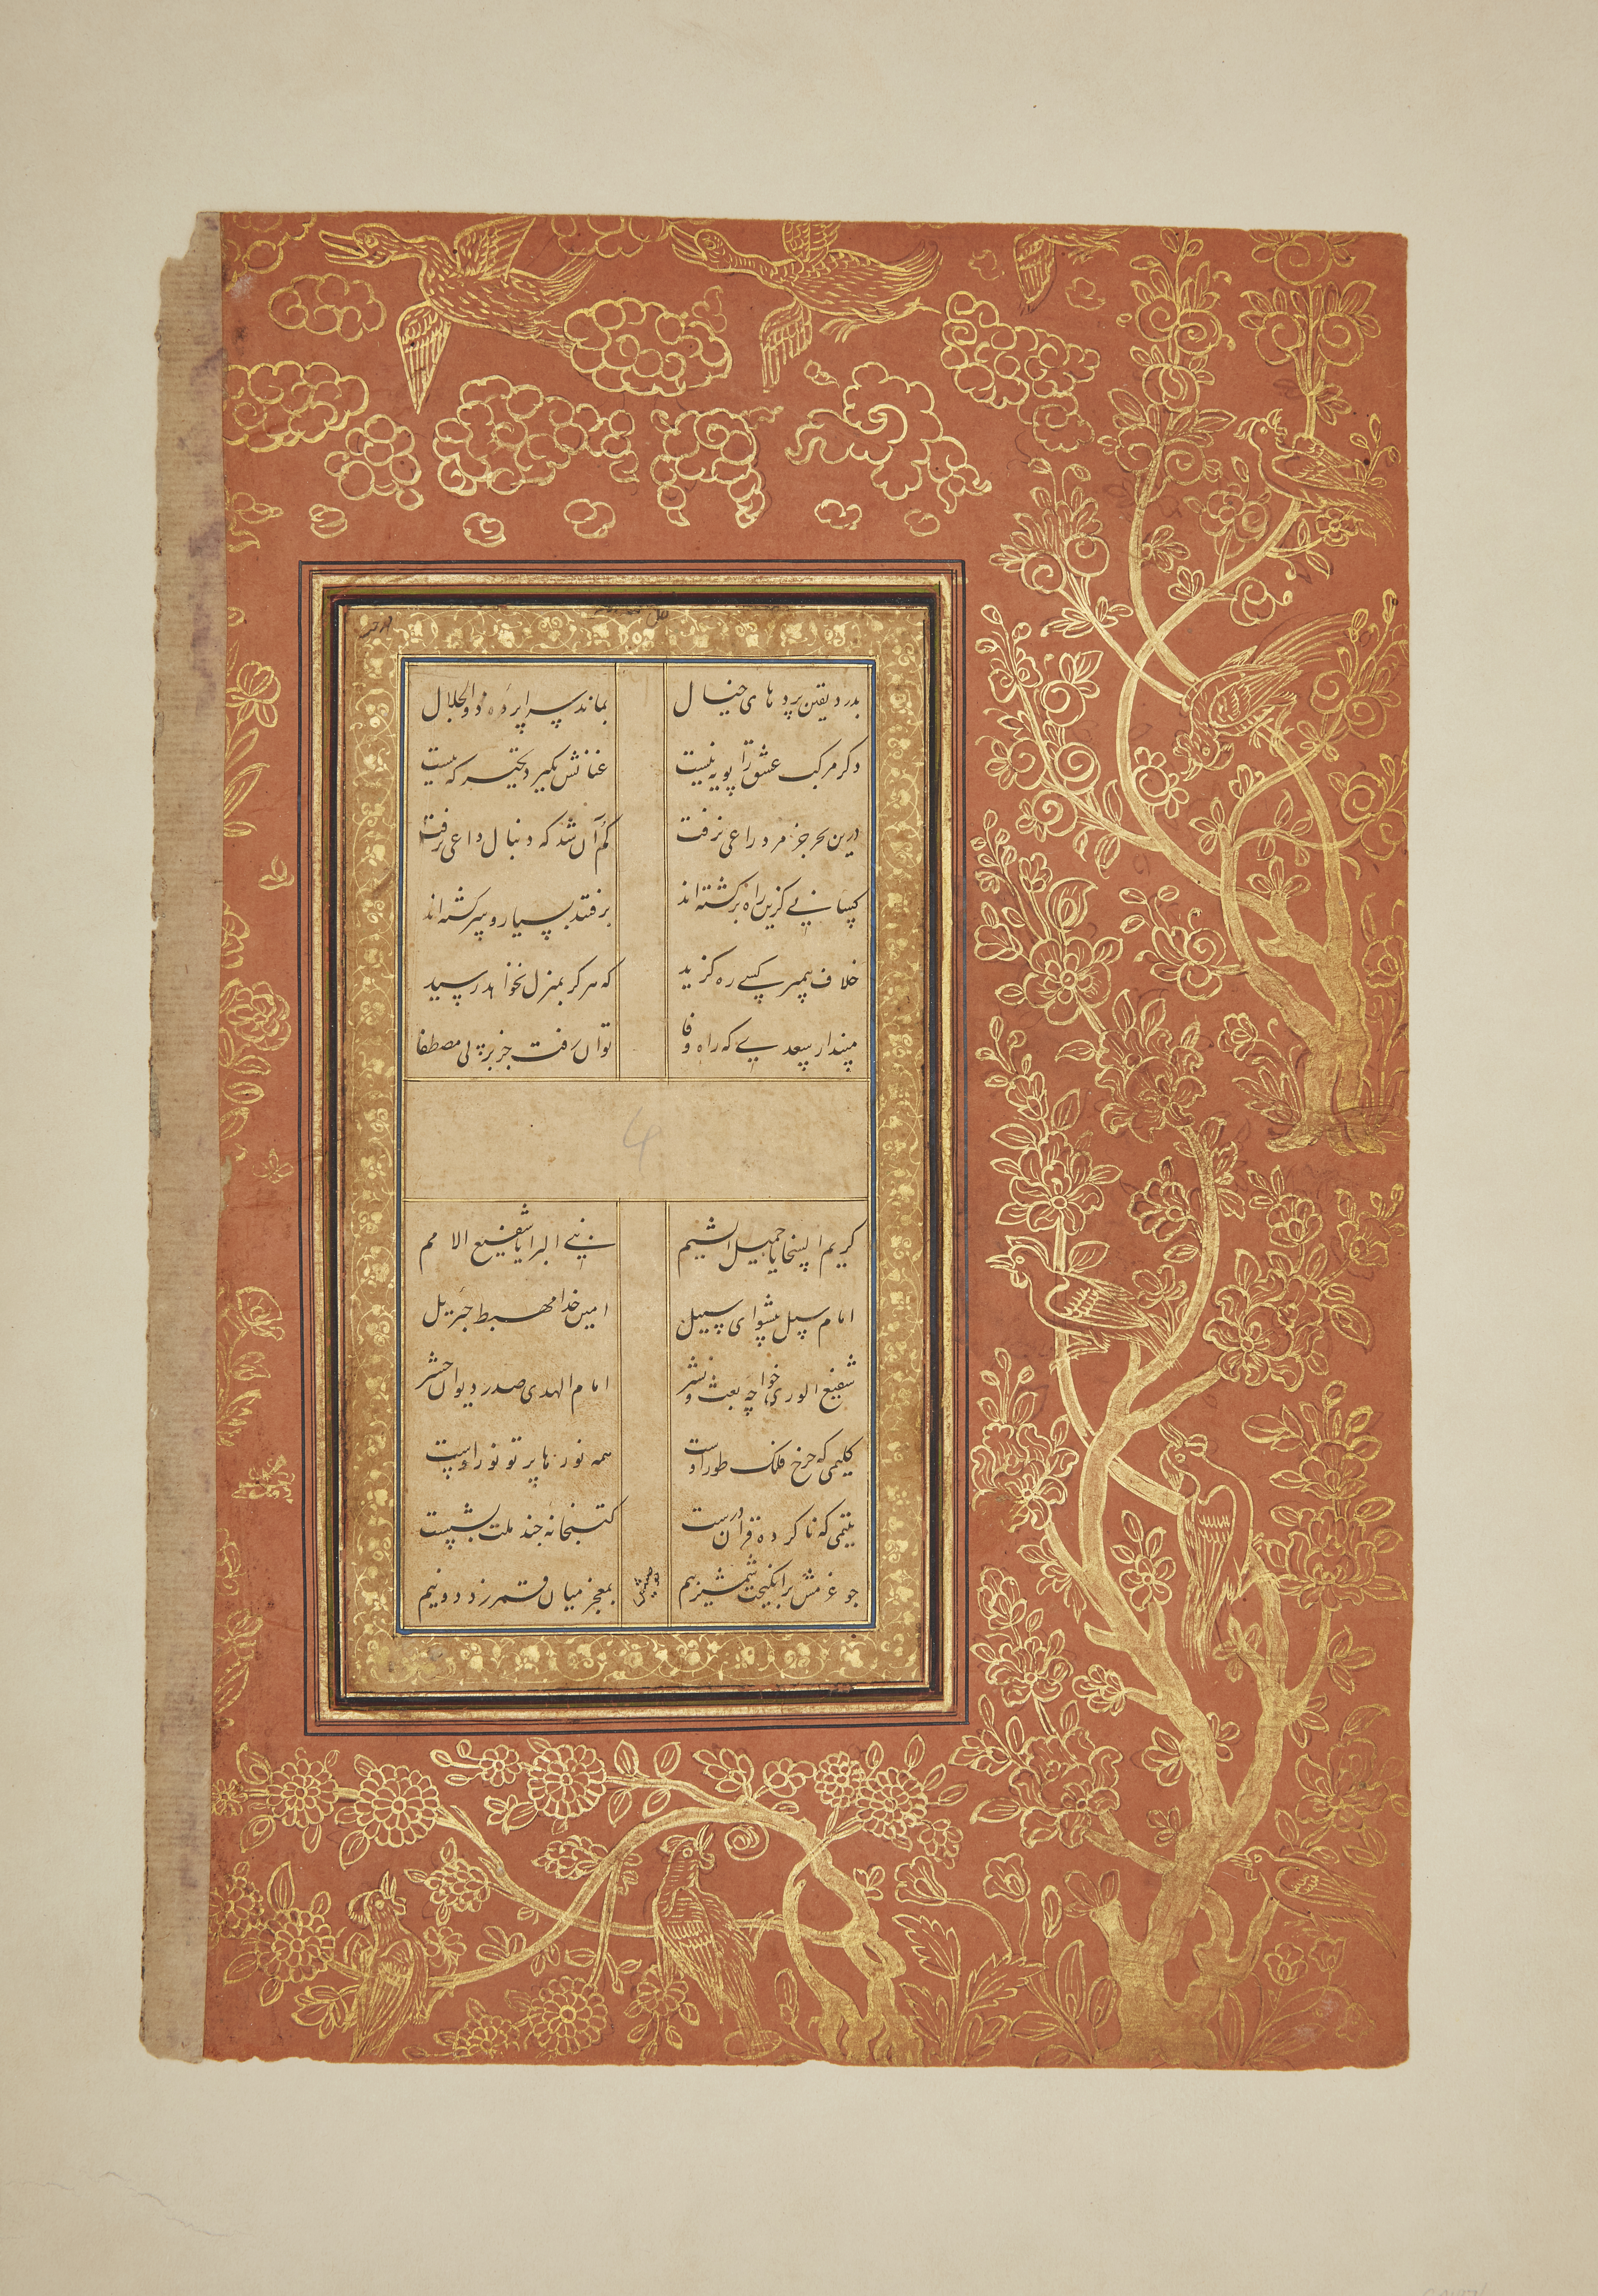 بدرد یقین پردهای خیال بماند سراپرده ذوالجلال
دگر مرکب عشق را پویه نیست عنانش بگیرد تحیر که بیست
درین بحر جز مرد راعی نرفت کم آن شد که دنبال داعی نرفت
کسانی کزین راه برکشته‌اند برفتند بسیار و سرکشته‌اند
خلاف پیمبر کسی ره کزید که هرکز بمنزل نخواهد رسید
مپندار سعدی که راه وفا توان رفت جز بر پی مصطفا
4
کریم السخایا جمیل الشیم نبی البرایا شفیع الامم
امام سبل پیشوای سبیل امین خدا مهبط جبرئیل
شفیع الوری خواجه بعث و نشر امام الهدی صدر دیوان حشر
کلیمی که چرخ فلک طور اوست همه نورها پرتو نور اوست
یتیمی که ناکرده قرآن درست کتبخانه چند ملت بشست
چو عزمش برانکیخت شمشیر بیم بمعجز میان قمر زد دو نیم